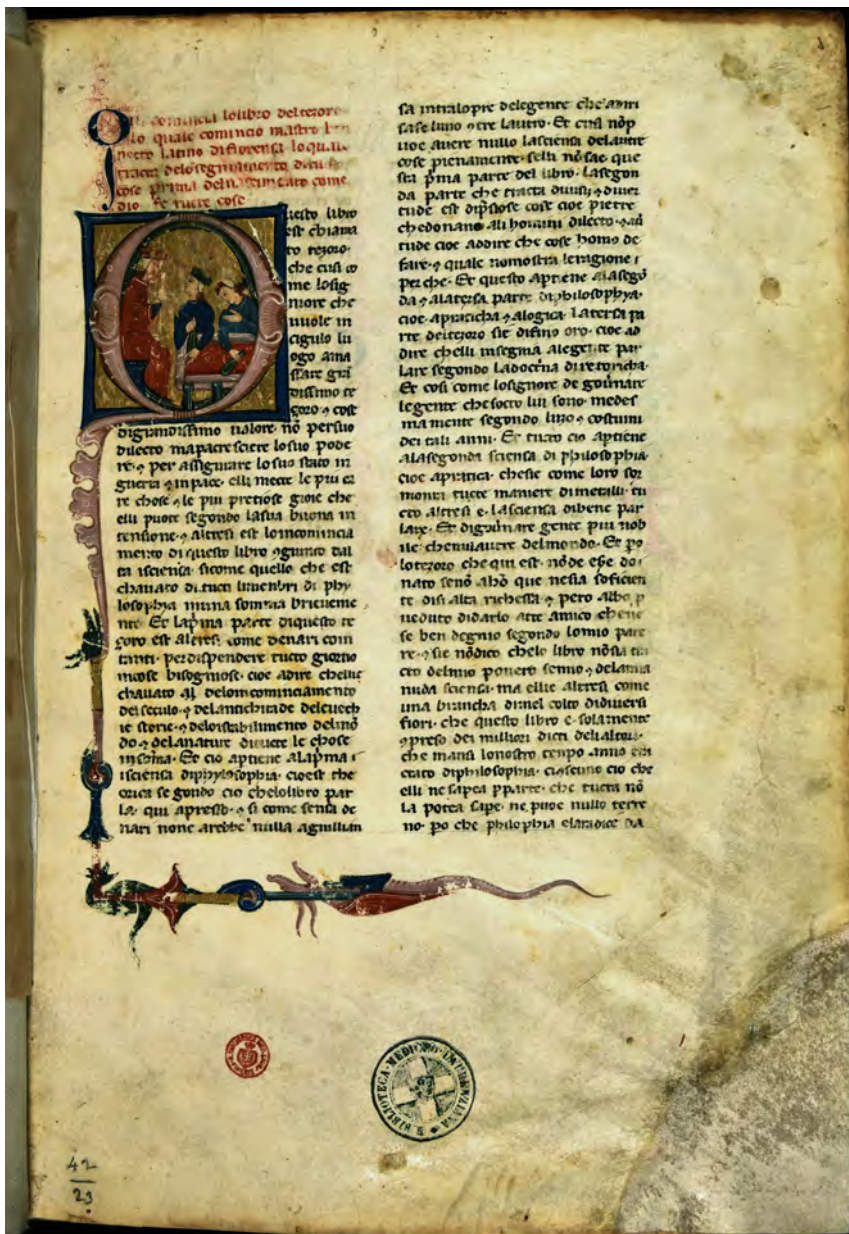 comincia lolibro deltezoro
lo quale comincio mastro
latino difiorensa loquale
tracta
cose prima come
dio fe tucte cose
uesto libro
est chiama
to tezoro
che cusi co
me losig
niore che
uuole in
cigulo lu
ogo ama
ssare gra
dissimo te
zoro ⁊ cose
digrandissimo ualore· nō persuo
dilecto mapacresciere losuo pode
re·⁊ per assigurare lo suo stato in
guerra ⁊ inpace· elli mecte le piu ca
re chose ⁊ le piu pretiose gioie che
elli puote segondo lasua buona in
tensione·⁊ altresi est loincomincia
mento di questo libro ⁊giunto dal
ta isciensa sicome quello che est
chauato di tucti limenbri di phy
losophya inuna somma brieueme
nte Et lap̄ma parte diquesto te
zoro est altresi come denari con
tanti· perdispendere tucto giorno
incose bisogniose· cioe adire chellie
chauato delomcominciamento
delseculo·⁊ delantichitade deleuech
ie storie·⁊ delostabilimento delmō
do·⁊ delanature ditucte le chose
insoma· Et cio aptiene alap̄ma i
isciensa diphylosophia· cioest the
orica segondo cio chelolibro par
la· qui apresso·⁊ si come sensa de
nari none arebbe nulla aguillian
sa intralopre delegente che
sase luno ⁊tre laltro· Et cusi nōp
uoe auere nullo lasciensa delaltre
cose pienamente· selli nō sae que
sta p̄ma parte del libro· lasegon
da parte che tracta diuisij ⁊ diuer
tude est dip̄tiose cose cioe pietre
chedonano ali homini dilecto·⁊
tude cioe addire che cose homo de
fare·⁊ quale nomostra leragione i
per che· Et questo aptiene alasegō
da ⁊ alatersa parte diphilosophya·
cioe apraticha ⁊ alogica· Latersa pa
rte deltezoro sie difino oro· cioe ad
dire chelli insegnia alegente par
lare segondo ladoctrina diretoricha·
Et cosi come losignore de gouernare
legente chesocto lui sono· medes
mamente segondo luzo·⁊ costumi
dei tali anni· Et tucto cio aptiene
alasegonda sciensa di philosophia·
cioe apratica· chesie come loro sor
monta tucte maniere dimetalli· cu
cto altresi e· lasciensa dibene par
lare· Et digouernare gente piu nob
ile chenulaltre delmondo· Et po
lotezoro che qui est· nōde esse do
nato senō aho que nesia soficien
te disi alta richessa·⁊ pero albo p
ueduto didarlo atte amico che
se ben degnio segondo lomio pare
re·⁊ sie nōdico chelo libro nōsia tra
cto delmio pouero senno·⁊ delamia
nuda sciensa· ma ellie altresi come
una brancha dimel colto didiuersi
fiori· che questo libro e· solamente
⁊preso dei milliori dicti
che mansi lonostro tenpo anno tra
ctato diphilosophia· ciascuno cio che
elli ne sapea pparte· che tucta nō
la potea sape· ne puoe nullo terre
no· po che philophia da
S BIBLIOTECA·MEDICEO·LAURENZIANA
42
23